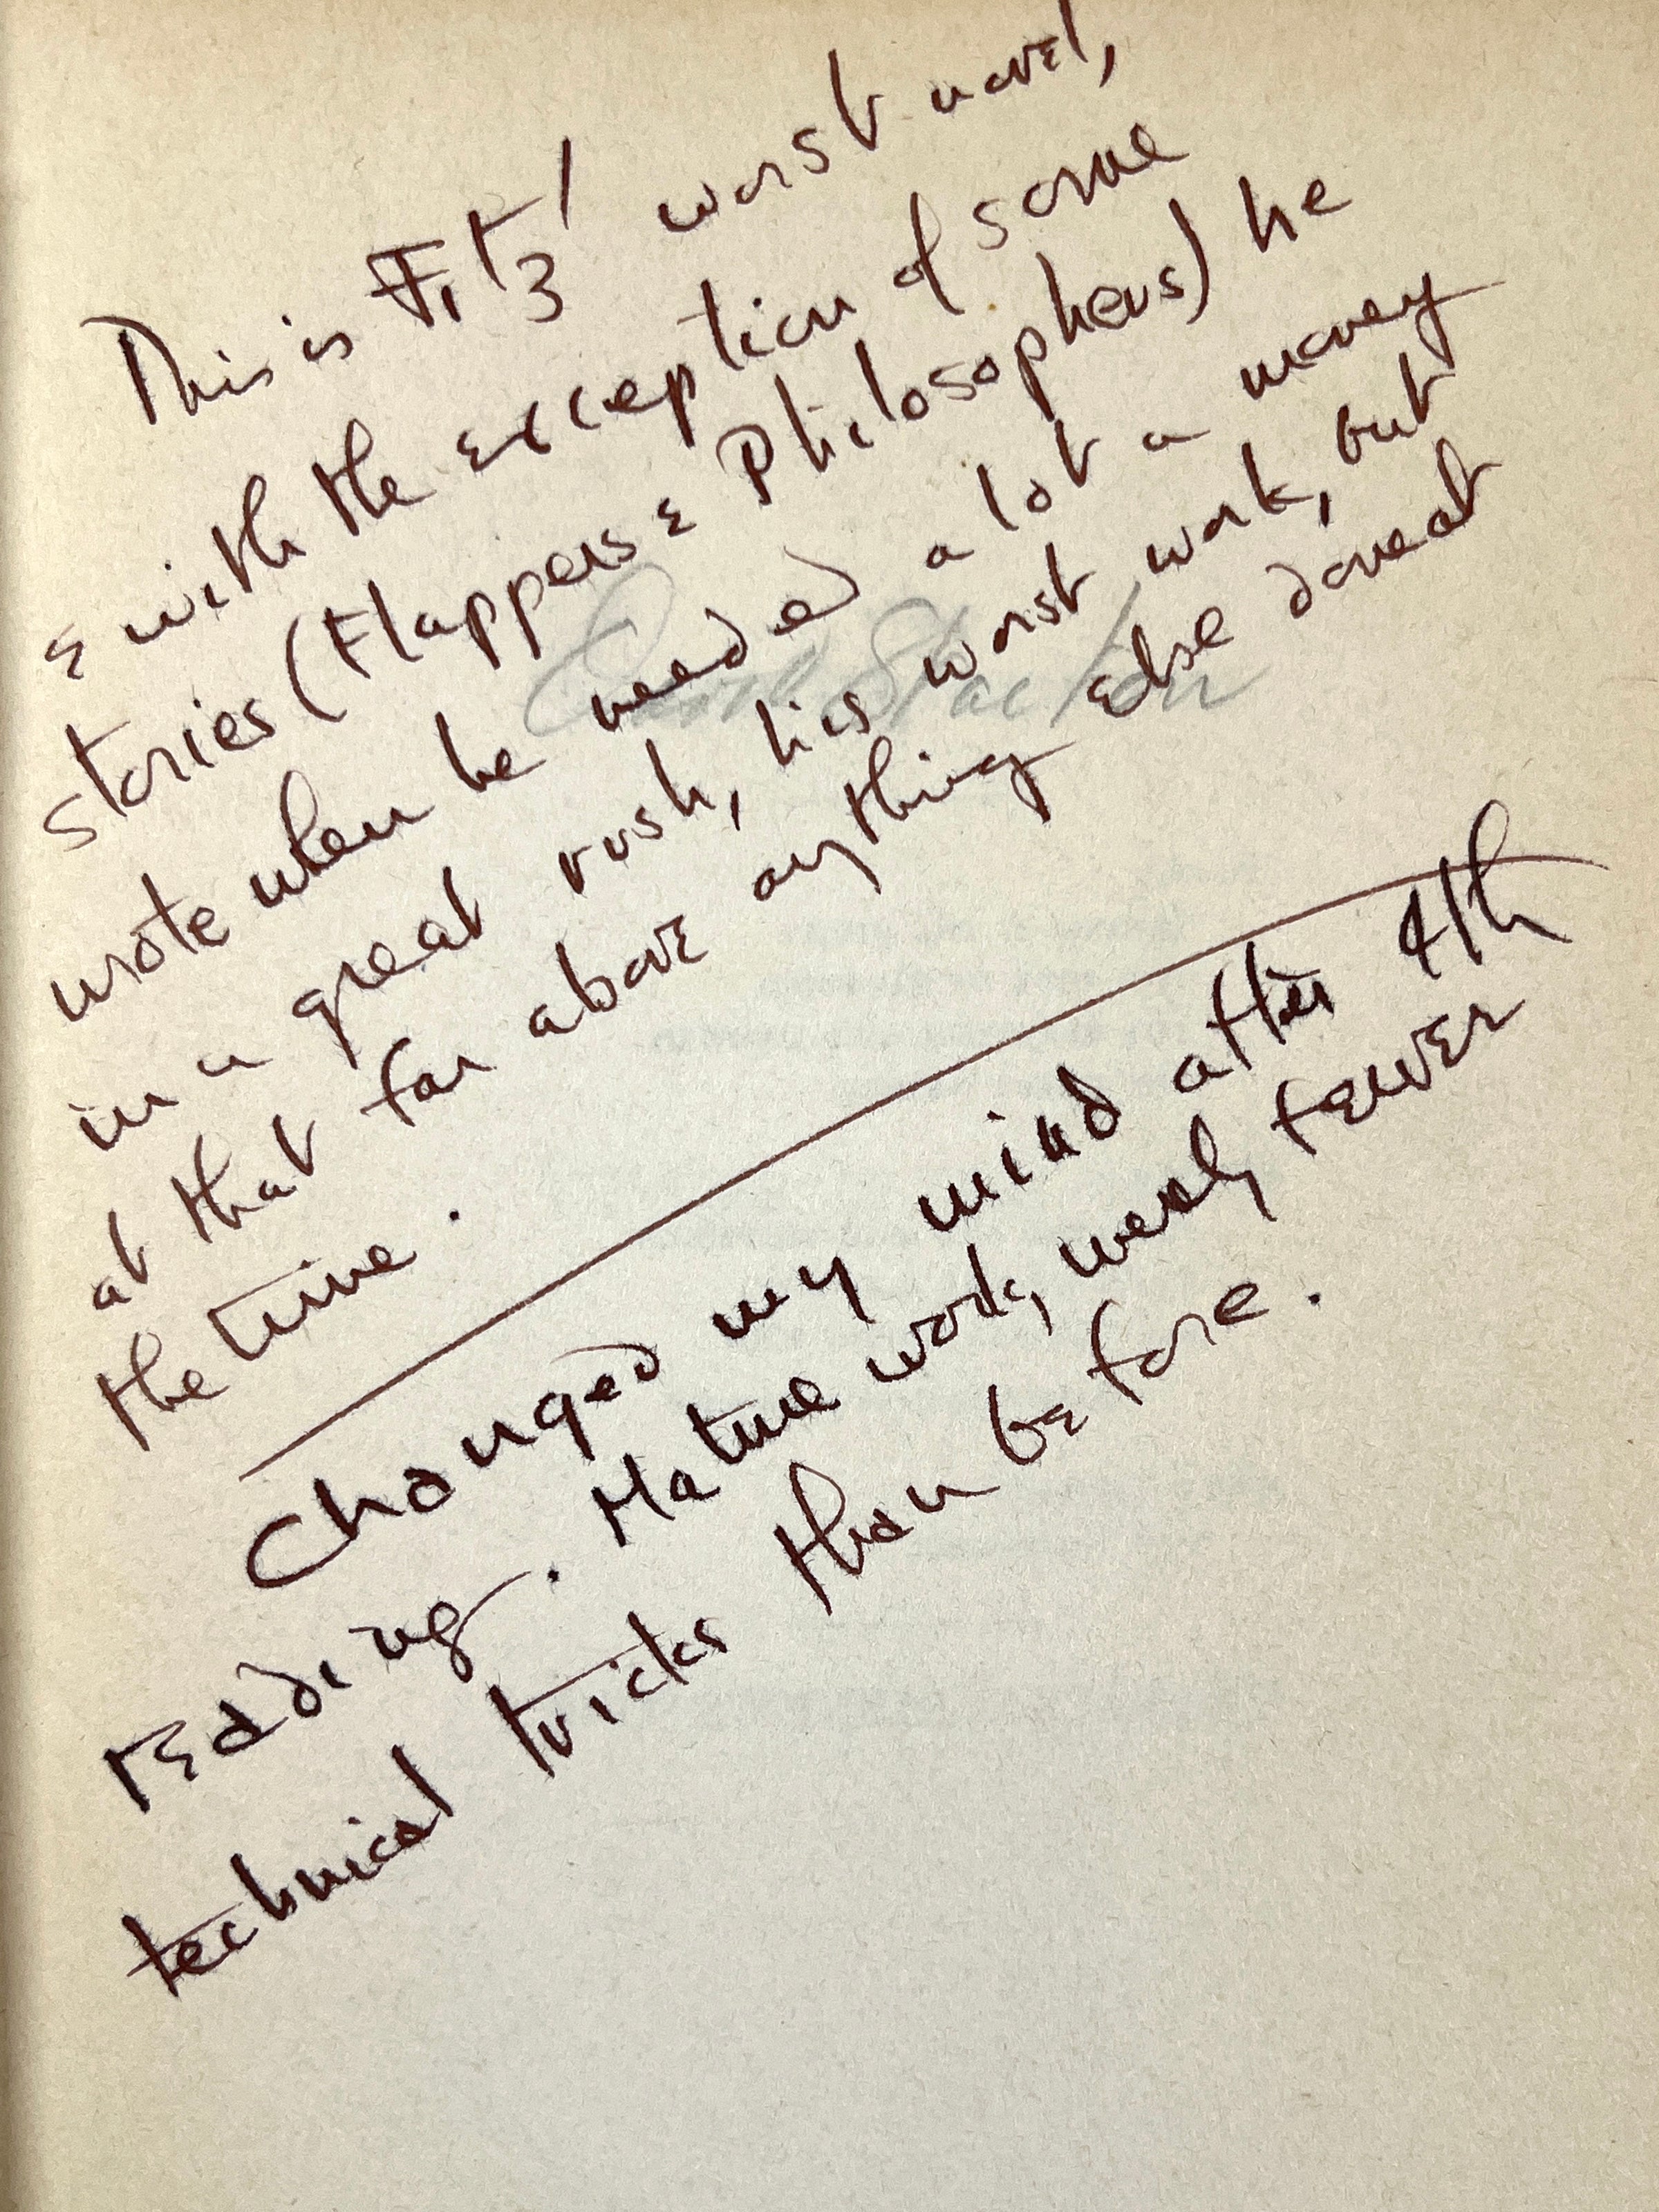 This is Fitz' worst novel,
& with the exception of some
stories (Flappers & Philosophers) he
wrote when he needed a lot a money
in a great rush, his worst work, but
at that far above anything else done at
the time.
Changed my mind after 4th
reading. Mature work, merely fewer
technical tricks than before.